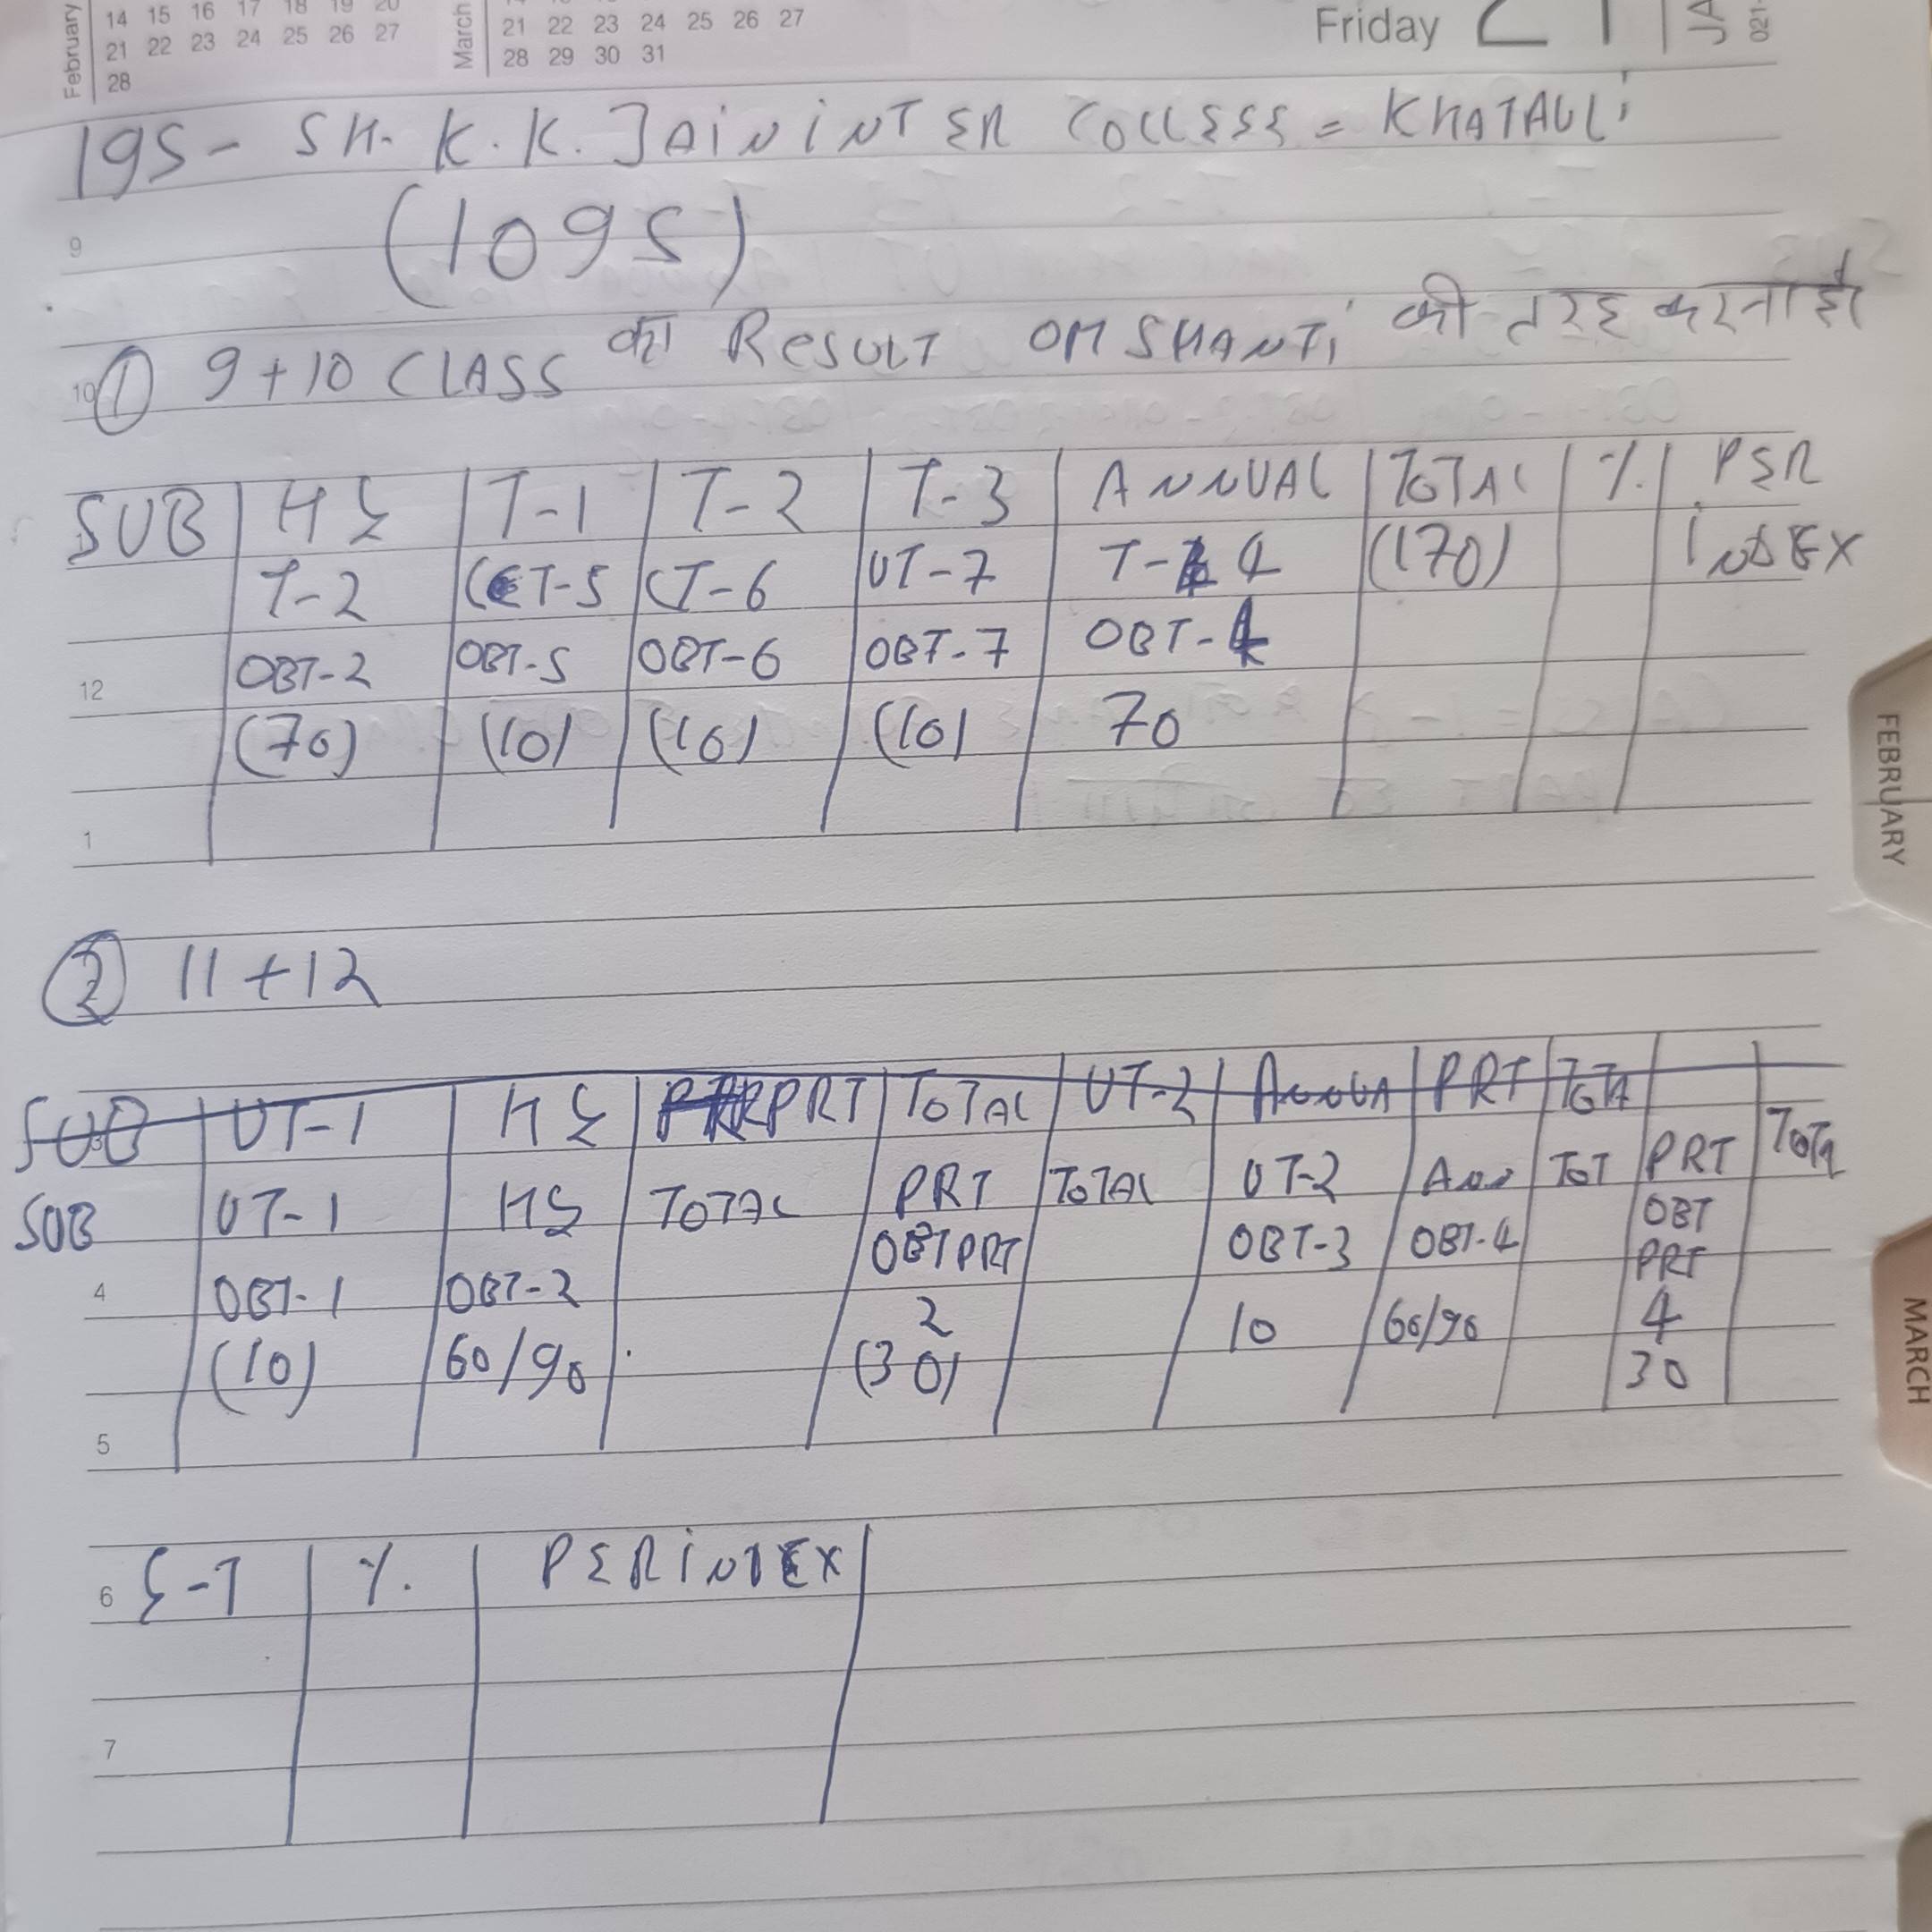 February
14 15 16 17 18 19 20
21 22 23 24 25 26 27
28
March
21 22 23 24 25 26 27
28 29 30 31
Friday 21 JA
021-
195 - SH. K. K. JAIN INTER COLLEGE = KHATAULI
9
(1095)
10 ① 9+10 CLASS का RESULT OM SHANTI की तरह करना है।
SUB HE T-1 T-2 T-3 ANNUAL TOTAL %. PER
T-2 CT-5 CT-6 UT-7 T-4 (170) INDEX
OBT-2 OBT-5 OBT-6 OBT-7 OBT-4
12
(70) (10) (10) (10) 70
1
② 11+12
SUB UT-1 HE PRT TOTAL UT-2 ANNUA PRT TOTA
SUB UT-1 HE TOTAL PRT TOTAL UT-2 Ann TOT PRT TOTA
4 OBT-1 OBT-2 OBTPRT OBT-3 OBT-4 OBT PRT
(10) 60/90 2 10 60/90 4
(30) 30
5
6 G-T %. PERINDEX
7
FEBRUARY
MARCH